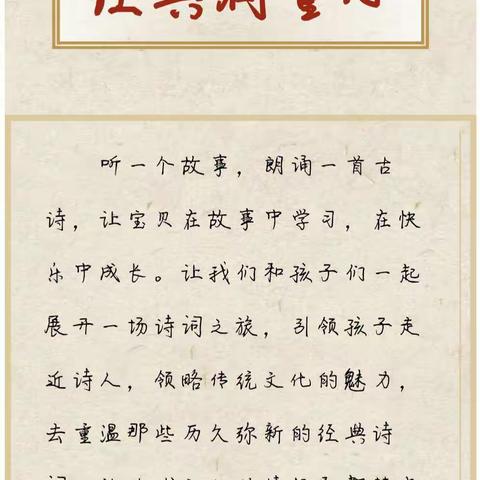 听一个故事，朗诵一首古
诗，让宝贝在故事中学习，在快
乐中成长。让我们和孩子们一起
展开一场诗词之旅，引领孩子走
近诗人，领略传统文化的魅力，
去重温那些历久弥新的经典诗